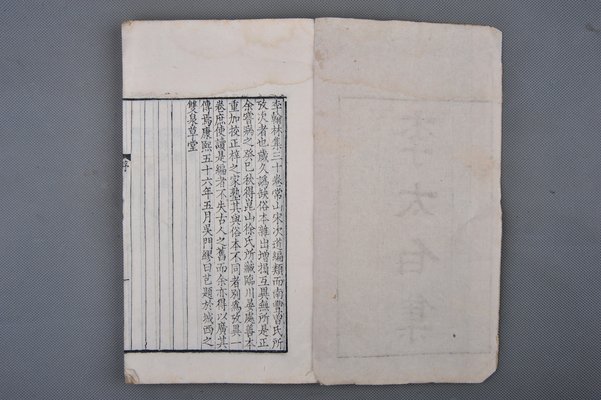 李太白集
李翰林集三十卷常山宋次道編類而南豐曾氏所
攷次者也歲久譌缺俗本雜出增損互異無所是正
余嘗病之癸巳秋得崑山徐氏所藏臨川晏處善本
重加校正梓之家塾其與俗本不同者別為攷異一
卷庶使讀是編者不失古人之舊而余亦得以廣其
傳焉康熙五十六年五月吳門繆曰芑題於城西之
雙泉草堂
序